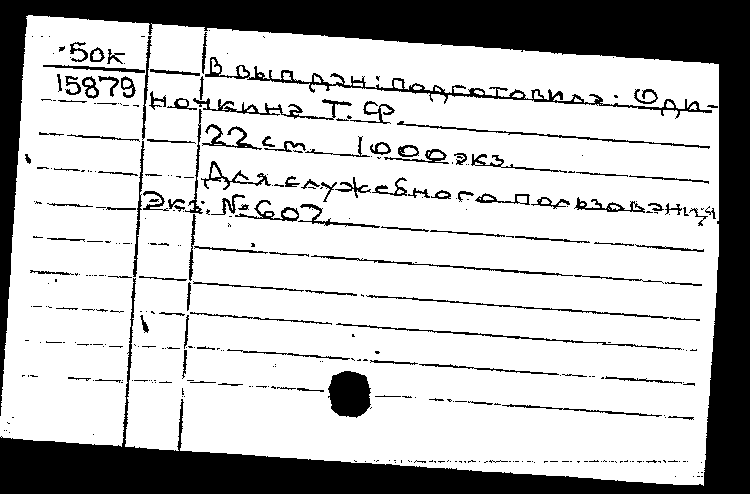 50к
15879
В вып. дан: подготовила: Оди-
ночкина Т. Ф.
22 см. 1000 экз.
Для служебного пользования.
Экз. №607.